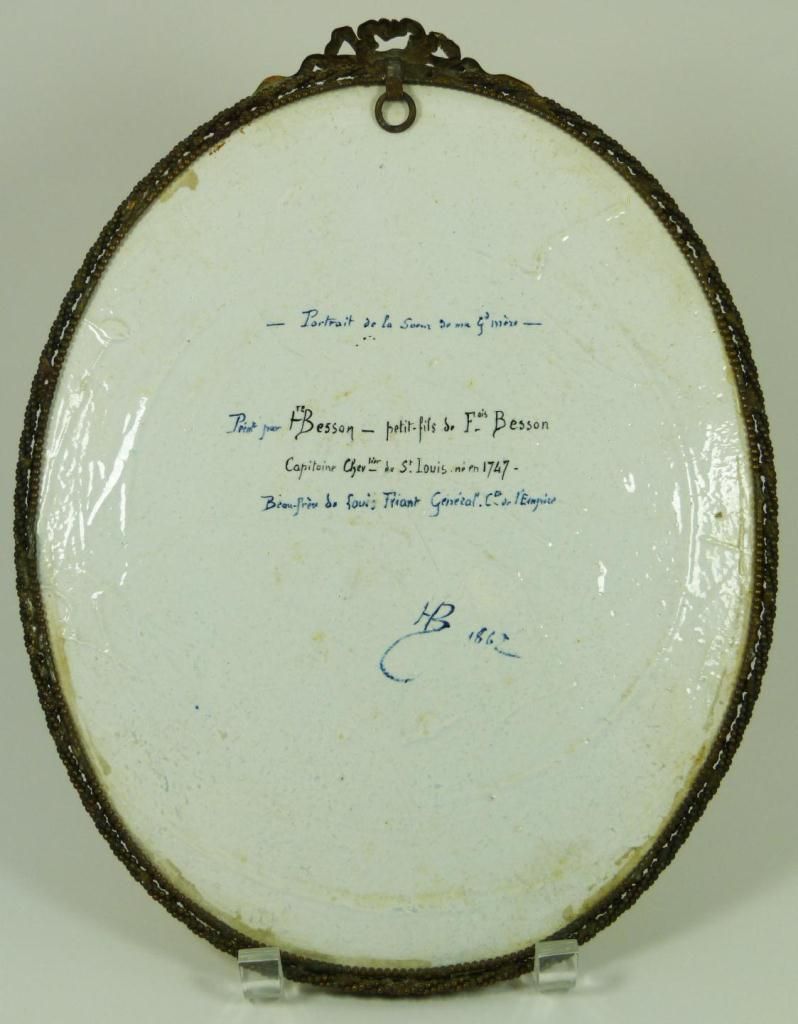 — Portrait de la Sœur de ma Gd mère —
Peint par Hre Besson — petit-fils de Fois Besson
Capitaine Chevlier de St. Louis. né en 1747 -
Beau-frère de Louis Friant Général. Cte de l'Empire
HB 186